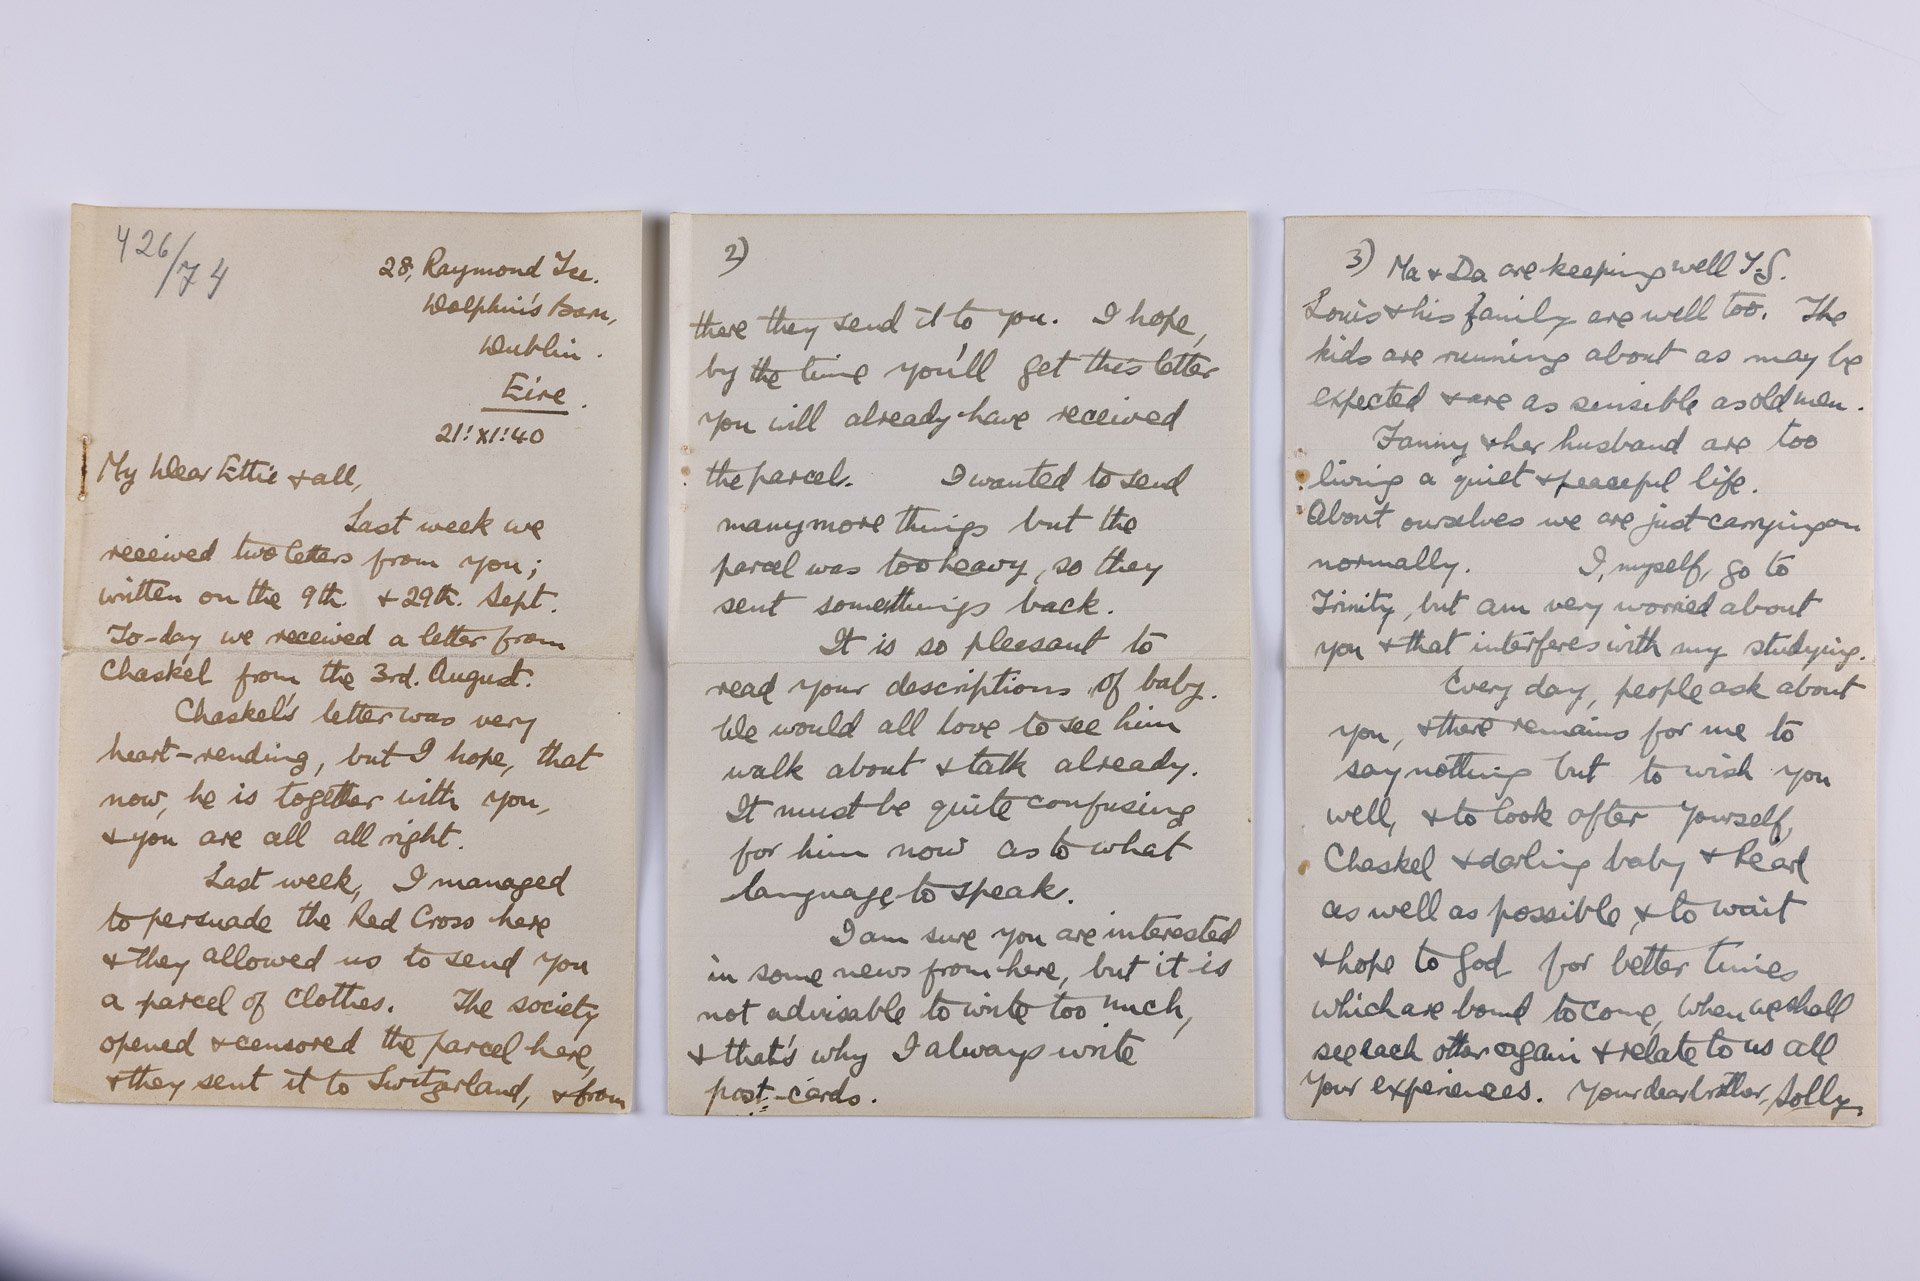 426/74
28, Raymond Tce.
Dolphin's Barn,
Dublin.
Eire.
21!XI!40
My Dear Ettie & all,
Last week we
received two letters from you;
written on the 9th. & 29th. Sept.
To-day we received a letter from
Chaskel from the 3rd. August.
Chaskel's letter was very
heart-rending, but I hope, that
now, he is together with you,
& you are all all right.
Last week, I managed
to persuade the Red Cross here
& they allowed us to send you
a parcel of clothes. The society
opened & censored the parcel here,
& they sent it to Switzerland, & from
2)
there they send it to you. I hope,
by the time you'll get this letter
you will already have received
the parcel. I wanted to send
many more things but the
parcel was too heavy, so they
sent somethings back.
It is so pleasant to
read your descriptions of baby.
We would all love to see him
walk about & talk already.
It must be quite confusing
for him now as to what
language, to speak.
I am sure you are interested
in some news from here, but it is
not advisable to write too much,
& that's why I always write
post-cards.
3) Ma & Da are keeping well T.G.
Louis & his family are well too. The
kids are running about as may be
expected & are as sensible as old men.
Fanny & her husband are too
living a quiet & peaceful life.
About ourselves we are just carrying on
normally. I, myself, go to
Trinity, but am very worried about
you & that interferes with my studying.
Every day, people ask about
you, & there remains for me to
say nothing but to wish you
well, & to look after yourself,
Chaskel & darling baby & Pearl
as well as possible, & to wait
& hope to God for better times
which are bound to come, when we shall
see each other again & relate to us all
your experiences. Your dear brother, Solly.